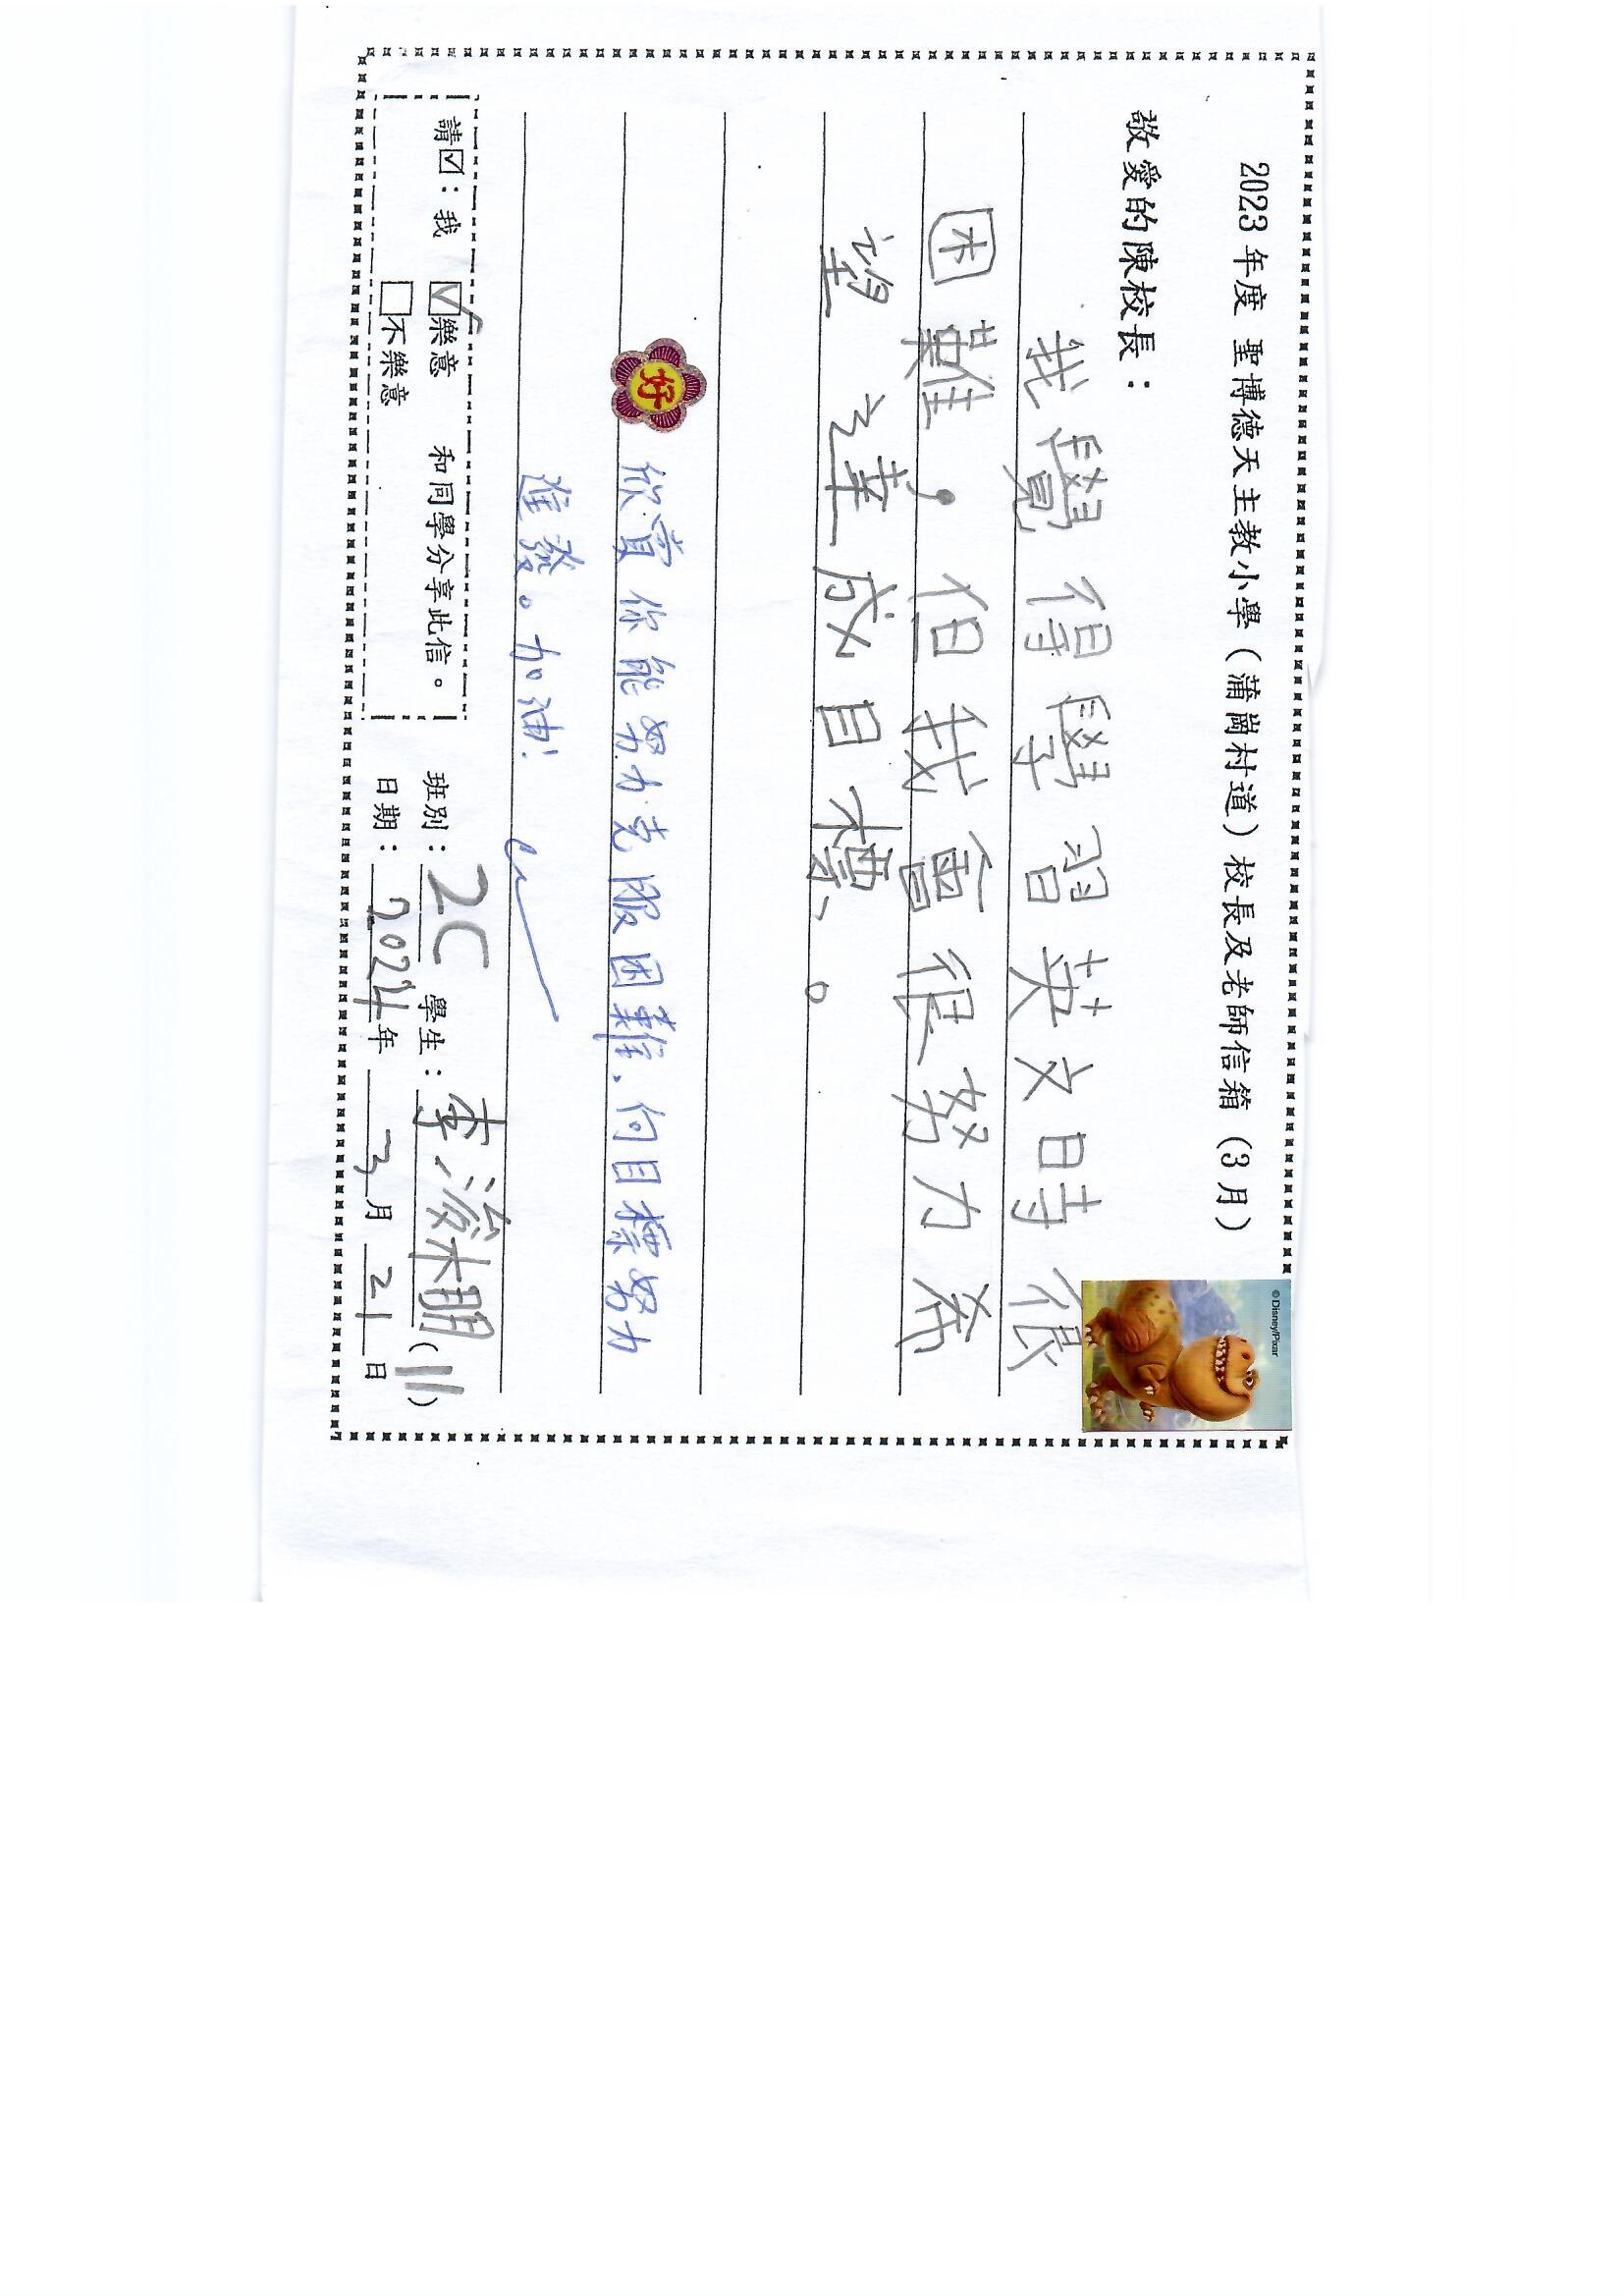 2023 年度 聖博德天主教小學（蒲崗村道）校長及老師信箱（3 月）
© Disney/Pixar
敬愛的陳校長：
我覺得學習英文時很
困難，但我會很努力希
望達成目標。
好 欣賞你能努力克服困難，向目標努力
進發。加油！
請☑：我 ☑樂意 和同學分享此信。
□不樂意
班別：2C 學生：李 朗 (11)
日期：2024年 3月 21日